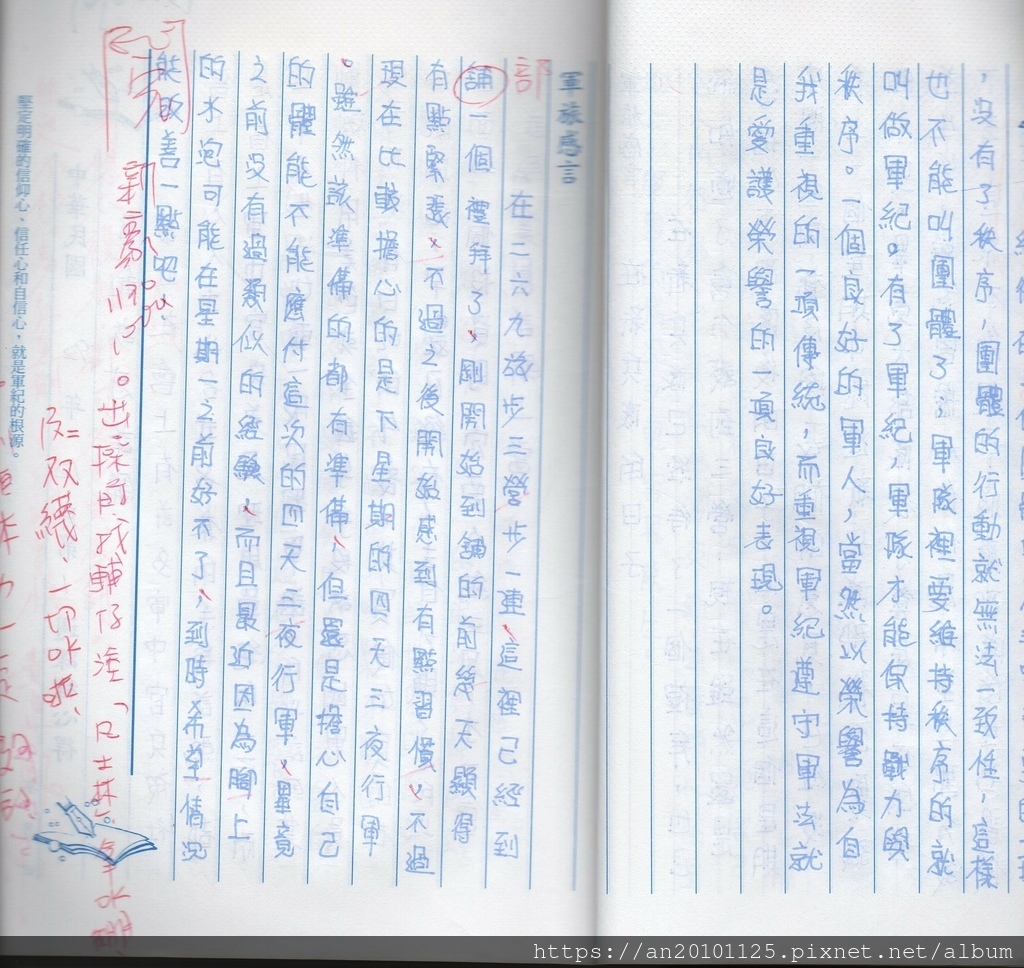 ，沒有了秩序，團體的行動就無法一致性，這樣
也不能叫團體了；軍隊裡要維持秩序的就
叫做軍紀。有了軍紀，軍隊才能保持戰力與
秩序。一個良好的軍人，當然以榮譽為自
我重視的一項傳統，而重視軍紀遵守軍法就
是愛護榮譽的一項良好表現。
軍旅感言
部
在二六九旅步三營步一連，這裡已經到
舖一個禮拜了，剛開始到舖的前幾天顯得
有點緊張，不過之後開始感到有點習慣，不過
現在比載擔心的是下星期的四天三夜行軍
。雖然該準備的都有準備，但還是擔心自己
的體能不能應付這次的四天三夜行軍，畢竟
之前沒有過類似的經驗，而且最近因為腳上
的水泡可能在星期一之前好不了，到時希望情況
能改善一點吧
出操前找輔仔塗「
雙襪，一切OK啦，
堅定明確的信仰心、信任心和自信心，就是軍紀的根源。
https://an20101125.pixnet.net/album